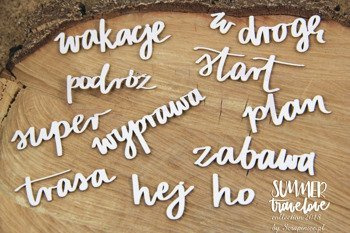 wakacje
w drogę
podróż
start
super
wyprawa
plan
zabawa
trasa
hej
ho
SUMMER
travelove
collection 2018
by Scrapiniec.pl